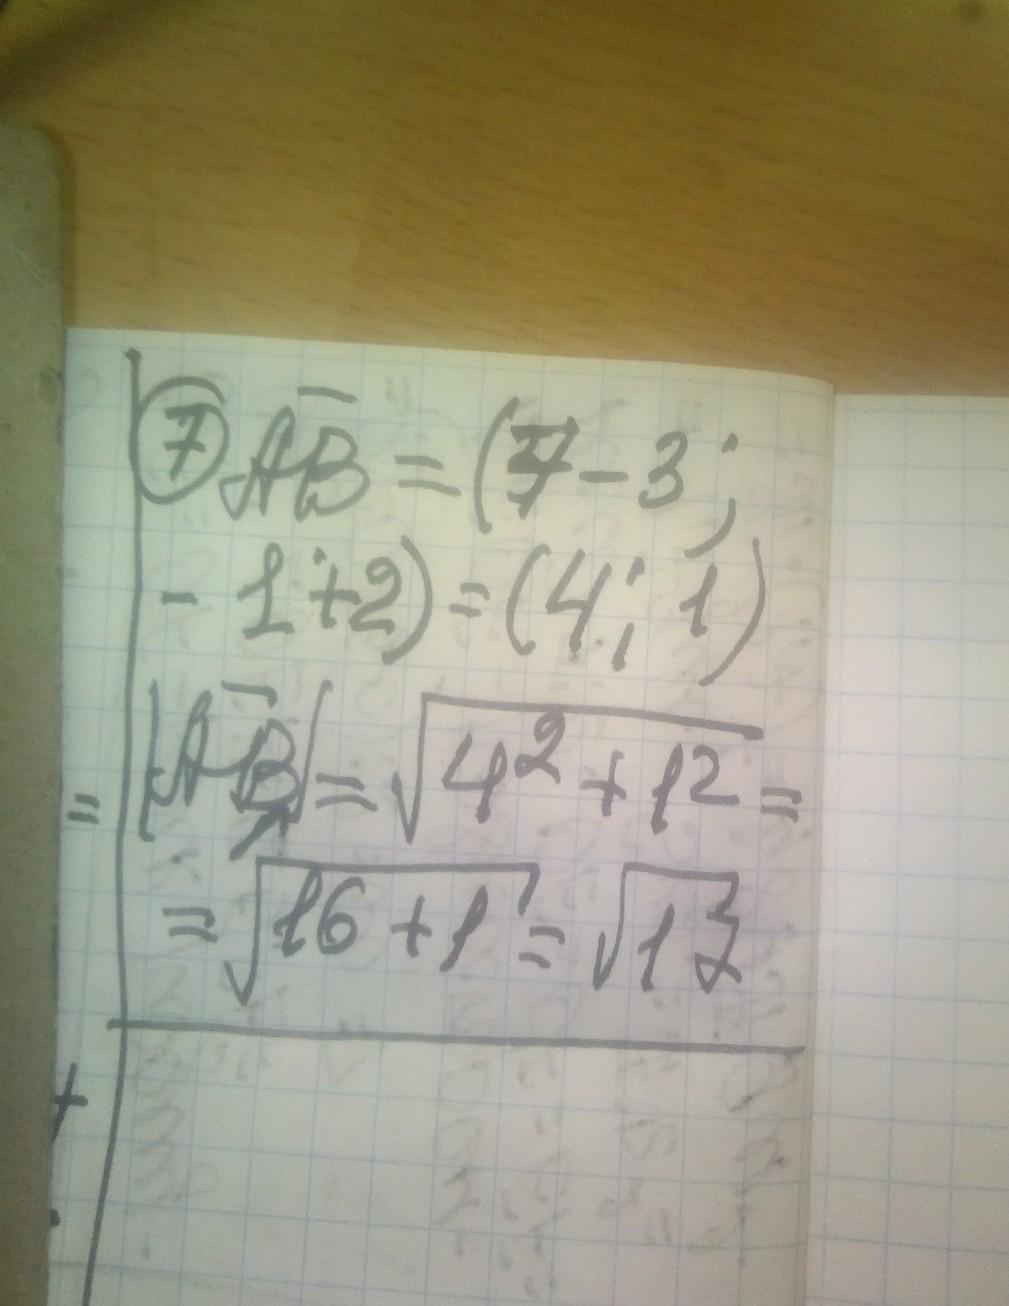 ⑦ A̅B̅ = (7 - 3 ;
- 1 + 2) = (4 ; 1)
|A̅B̅| = √4² + 1² =
= √16 + 1 = √17